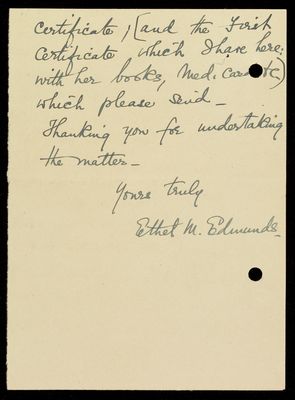 certificate, [and the First
Certificate which I have here:
with her books, Med. Card etc)
which please send –
Thanking you for undertaking
the matter –
Yours truly
Ethel M. Edmunds.